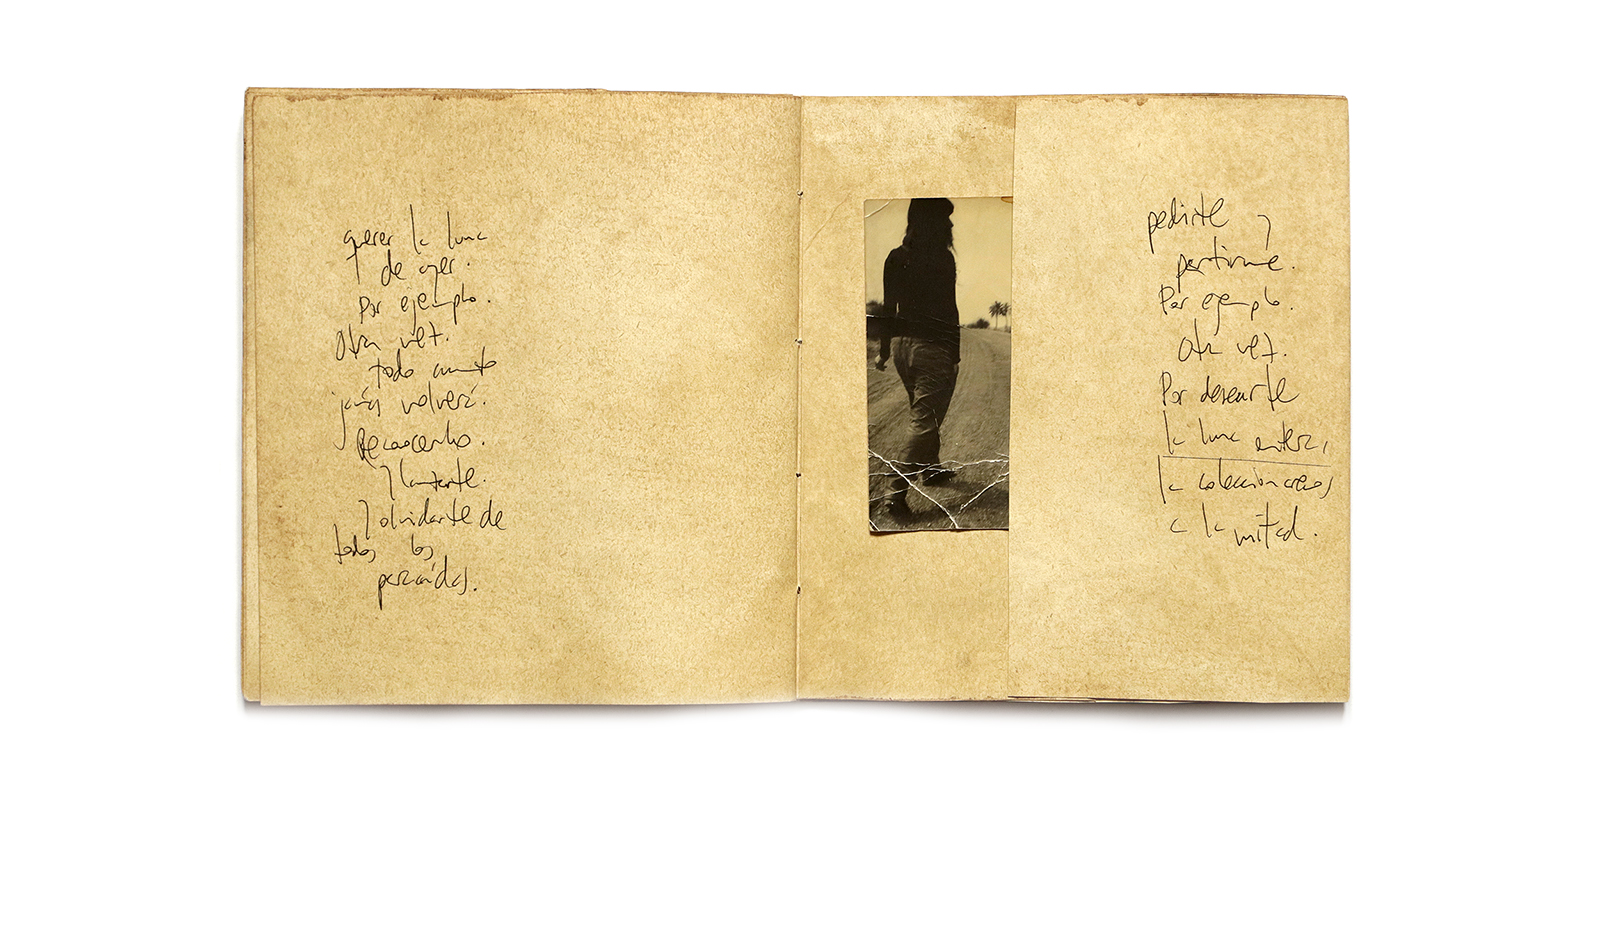 querer la luna
de ayer.
Por ejemplo.
Otra vez.
todo cuanto
jamás volverá.
Reconocerlo.
y
y olvidarte de
todos los
paraídos.
pedirte y
partirme.
Por ejemplo.
Otra vez.
Por desearte
la luna entera,
la coleccionamos
a la mitad.